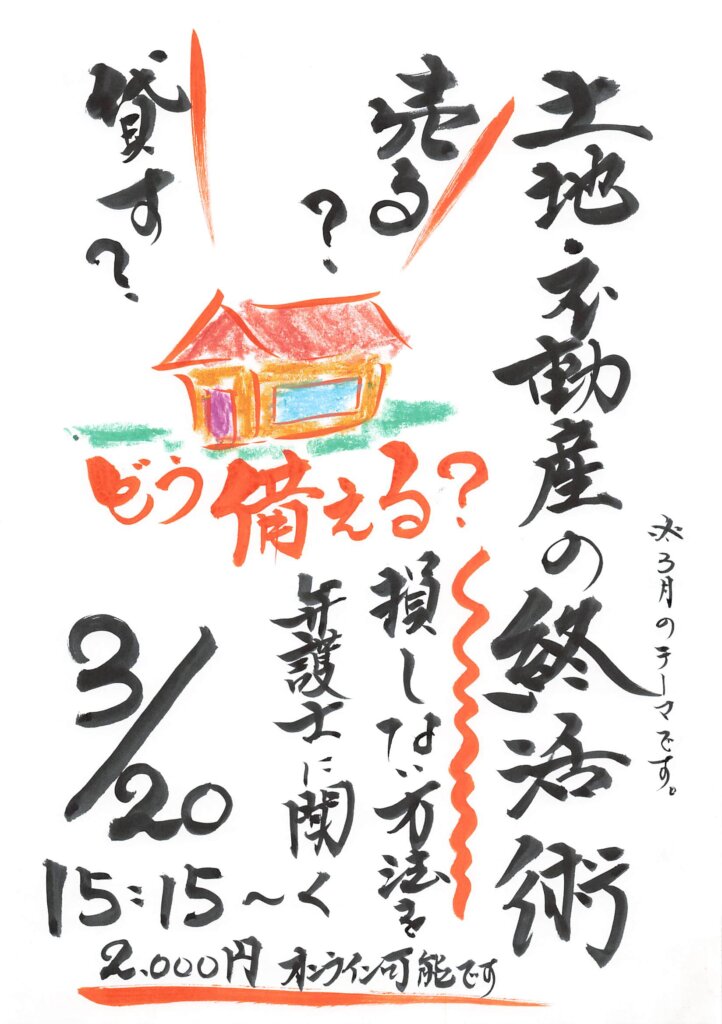 ※3月のテーマです。
土地・不動産の終活術
売る?
貸す?
どう備える?
損しない方法を
弁護士に聞く
3/20
15:15~
2.000円 オンライン可能です